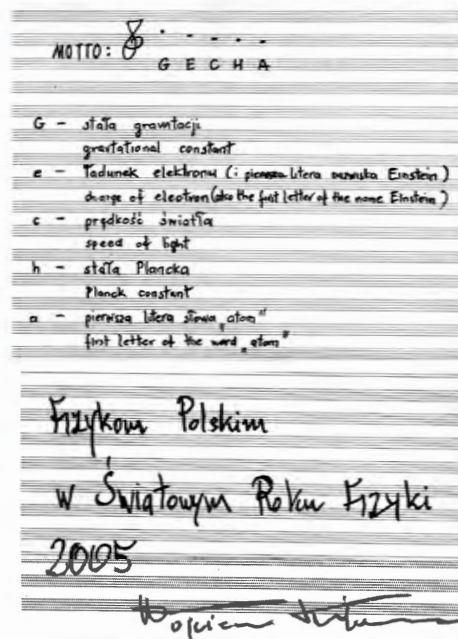 MOTTO:
G E C H A
G - stała grawitacji
gravitational constant
e - ładunek elektronu (i pierwsza litera nazwiska Einstein)
charge of electron (also the first letter of the name Einstein)
c - prędkość światła
speed of light
h - stała Plancka
Planck constant
a - pierwsza litera słowa "atom"
first letter of the word "atom"
Fizykom Polskim
w Światowym Roku Fizyki
2005